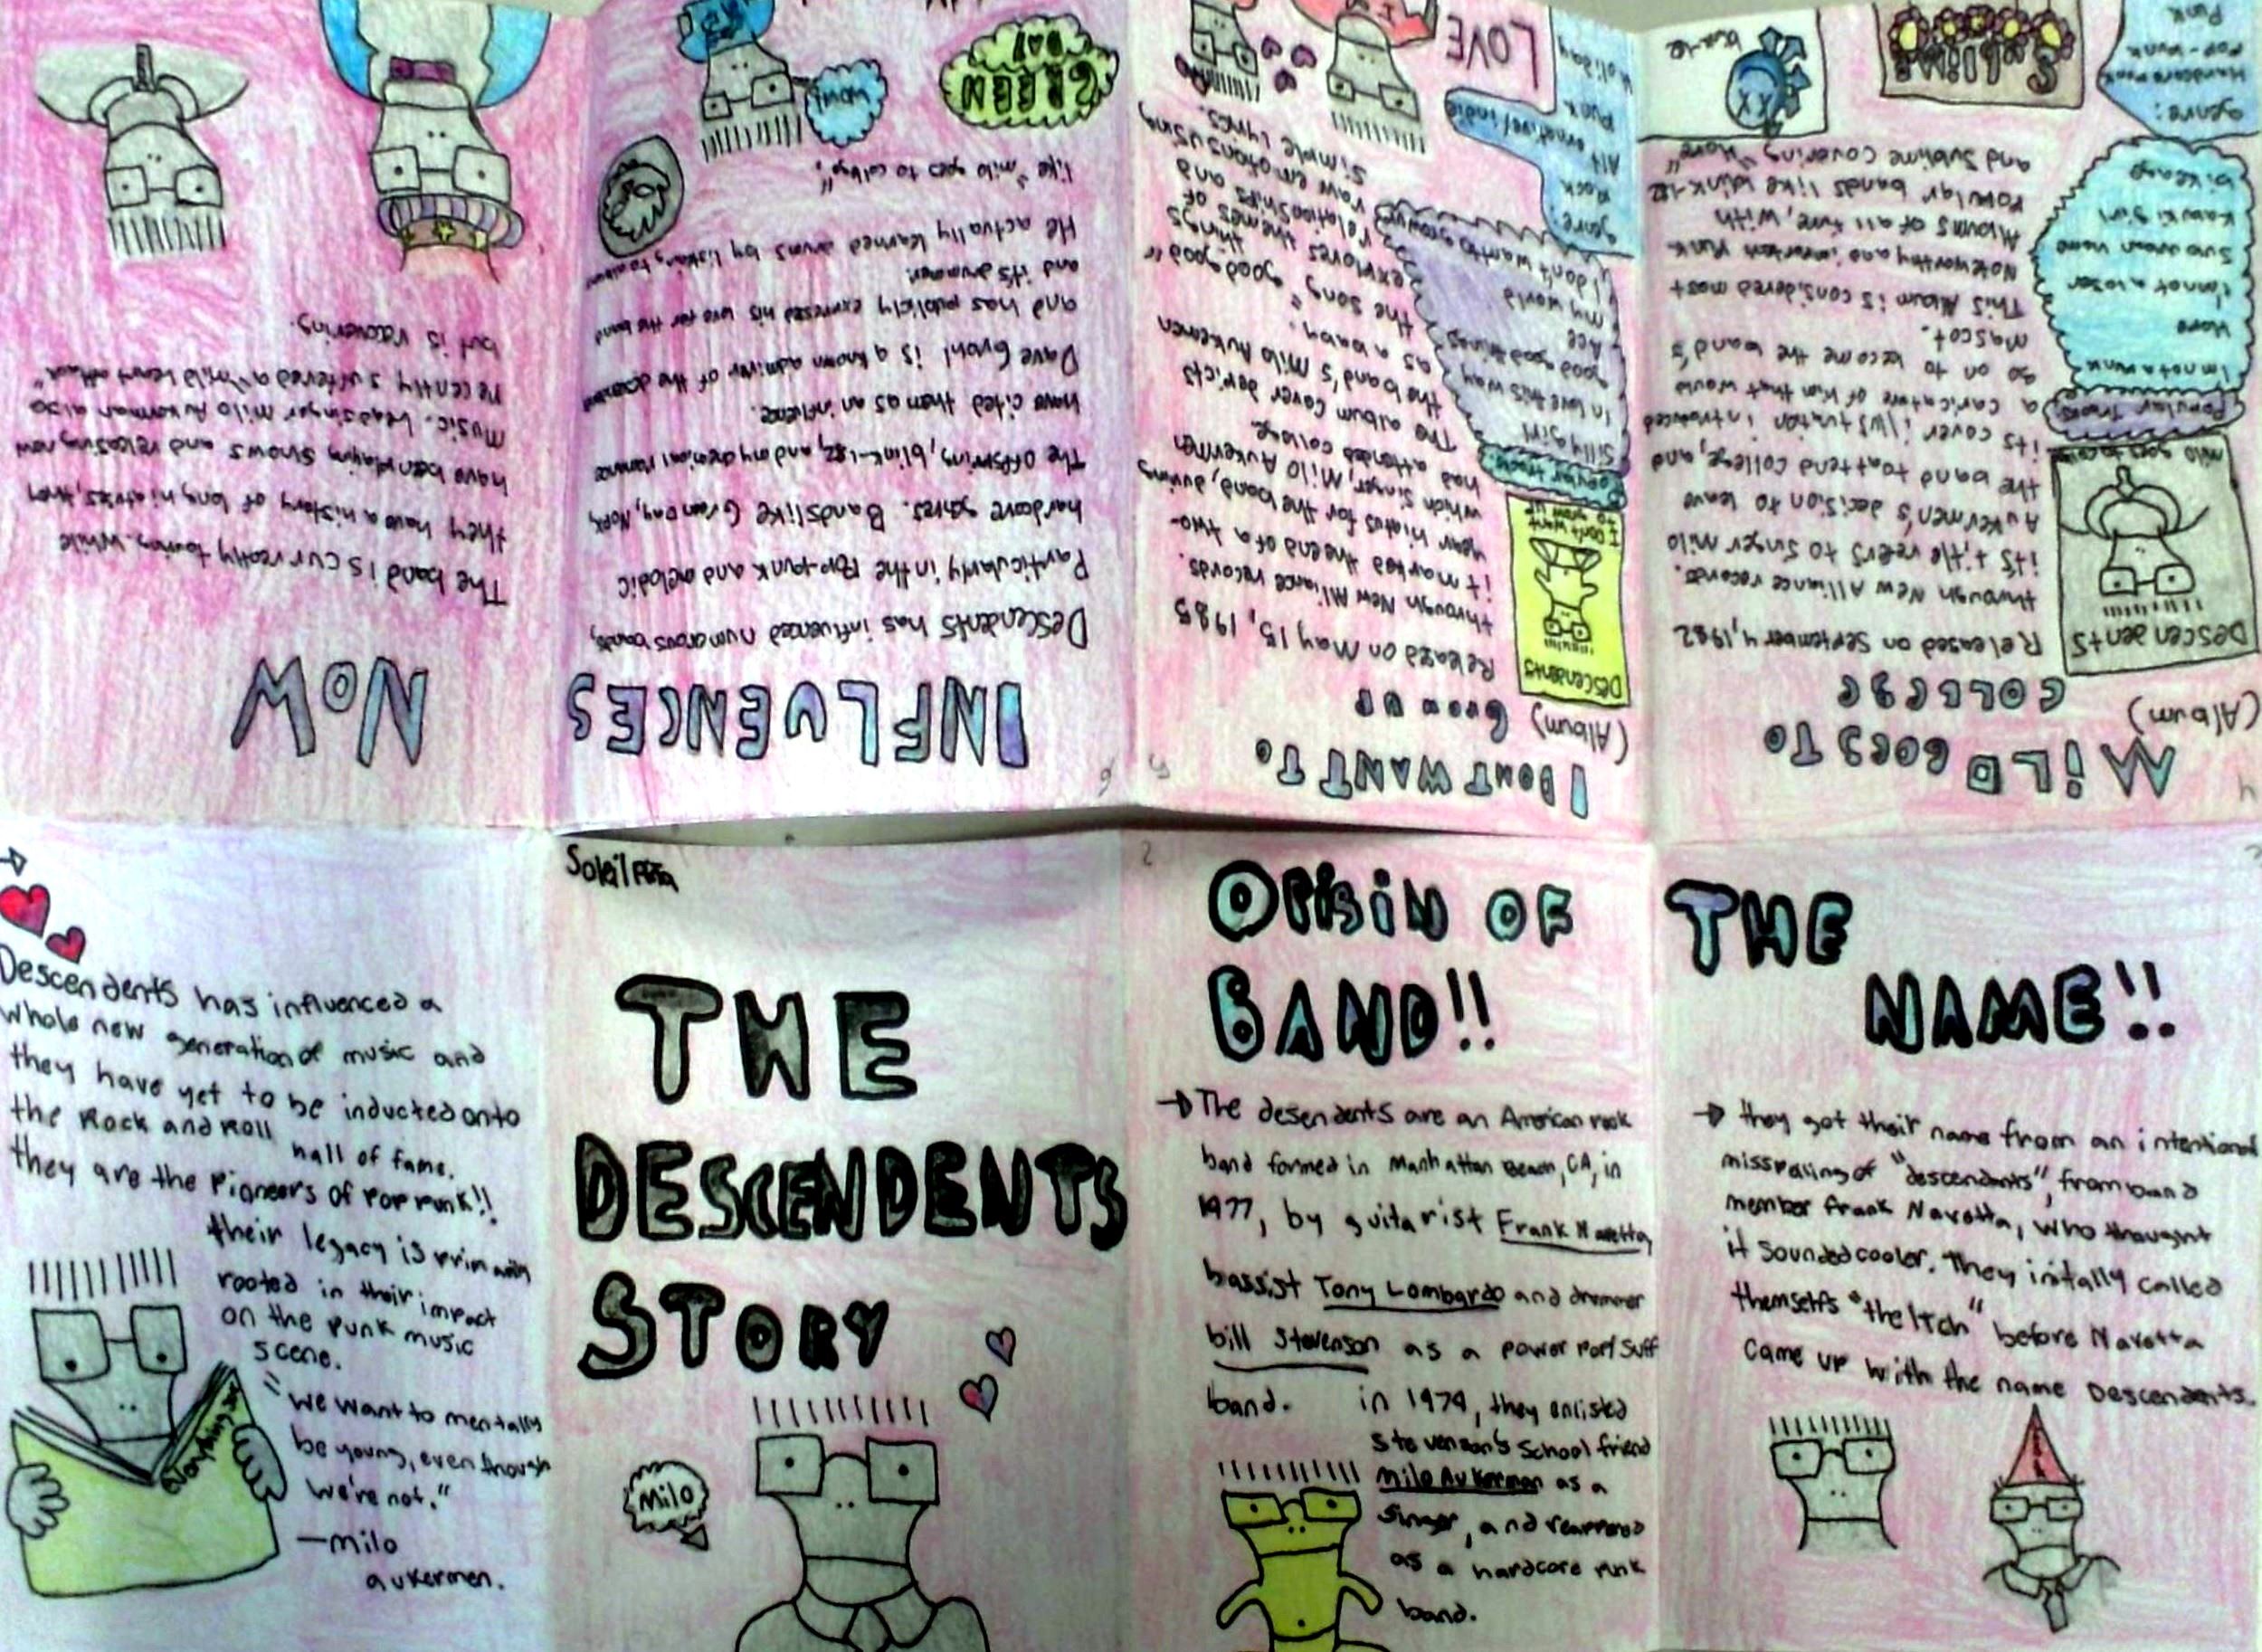 Soleil
THE
DESCENDENTS
STORY
Milo
2
ORIGIN OF
BAND!!
→ The desendents are an American rock
band formed in Manhattan Beach, CA, in
1977, by guitarist Frank Navetta,
bassist Tony Lombardo and drummer
bill Stevenson as a power pop/surf
band. in 1979, they enlisted
Stevenson's School friend
Milo Aukerman as a
Singer, and reappered
as a hardcore punk
band.
THE
NAME!!
→ they got their name from an intentional
misspelling of "descendants", from band
member frank Navetta, who thought
it sounded cooler. They initally called
themselfs "the Itch" before Navetta
came up with the name Descendents.
4
MILO GOES TO
COLLEGE
(Album)
Released on September 4, 1982
through New Alliance records.
it's title refers to singer milo
Aukermen's decision to leave
the band to attend college, and
its cover illustration introduced
a caricature of him that would
go on to become the band's
mascot.
This Album is considered most
Noteworthy and important Punk
Albums of all time, with
Popular bands like blink-182
and Sublime covering "Hope"
DESCENDENTS
milo goes to college
Popular tracks
I'm not a punk
Hope
I'm not a loser
Suburban home
Kabuki girl
bikeage
genre:
Hardcore punk
Pop-punk
Punk
blink-182
SUBLIME
5
I DONT WANT TO
GROW UP
(Album)
Released on May 15, 1985
through New Alliance records.
it marked the end of a two-
year hiatus for the band, during
which singer, Milo Aukermen
had attended college.
The album cover depicts
the band's Milo Aukermen
as a baby.
the song "good good things"
explores themes of
relationships and
raw emotions using
simple lyrics.
Descendents
I don't want to grow up
Popular tracks
Silly girl
In love this way
good good things
Ace
my world
I don't want to grow up
genre:
Rock
Alt ernative/indie
Punk
Holiday
LOVE
6
INFLUENCES
Descendents has influenced numerous bands,
Particularly in the Pop-punk and melodic
hardcore genres. Bands like Green Day, NOFX,
The Offspring, blink-182, and my chemical romance
have cited them as an influence.
Dave Grohl is a known admirer of the descendents
and has publicly expressed his love for the band
and it's drummer.
He actually learned drums by listening to albums
like "milo goes to college".
GREEN
DAY
NOW
The band is currently touring. While
they have a history of long hiatuses, they
have been playing shows and releasing new
music. Leadsinger Milo Aukerman also
recently suffered a "mild heart attack"
but is recovering.
Descendents has influenced a
whole new generation of music and
they have yet to be inducted onto
the Rock and Roll hall of fame.
they are the Pioneers of POP PUNK!!
their legacy is primarily
rooted in their impact
on the punk music
scene.
"We want to mentally
be young, even though
we're not."
—milo
aukermen.